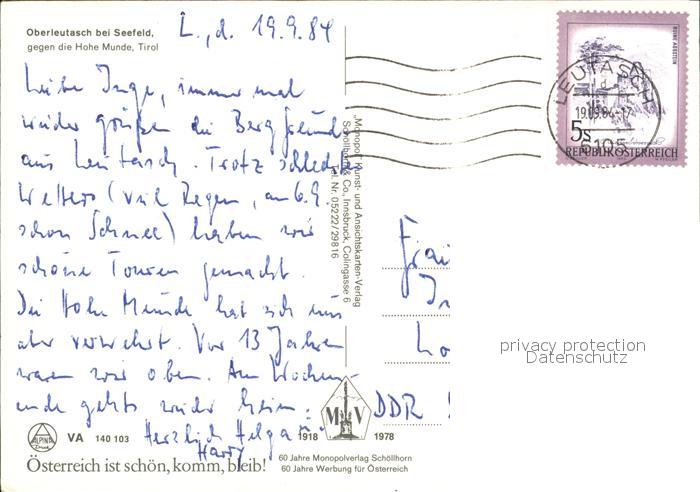 Oberleutasch bei Seefeld,
gegen die Hohe Munde, Tirol
L., d. 19.9.84
Liebe Inge, immer mal
wieder grüßen die Bergfreunde
aus Leutasch. Trotz schlechten
Wetters (viel Regen, am 6.9.
schon Schnee) haben wir
schöne Touren gemacht.
Die Hohe Munde hat sich uns
aber verwehrt. Vor 13 Jahren
waren wir oben. Am Wochen-
ende gehts wieder heim.
Herzlich Helga
Harry
VA 140 103
ALPINA
Druck
Österreich ist schön, komm, bleib!
"Monopol" Kunst- und Ansichtskarten-Verlag
Schöllhorn & Co., Innsbruck, Colingasse 6
Tel. Nr. 05222/29816
1918 M V 1978
60 Jahre Monopolverlag Schöllhorn
60 Jahre Werbung für Österreich
RUINE AGGSTEIN
LEUTASCH
19.09.84-17
6105
5S
REPUBLIK ÖSTERREICH
DDR
privacy protection
Datenschutz